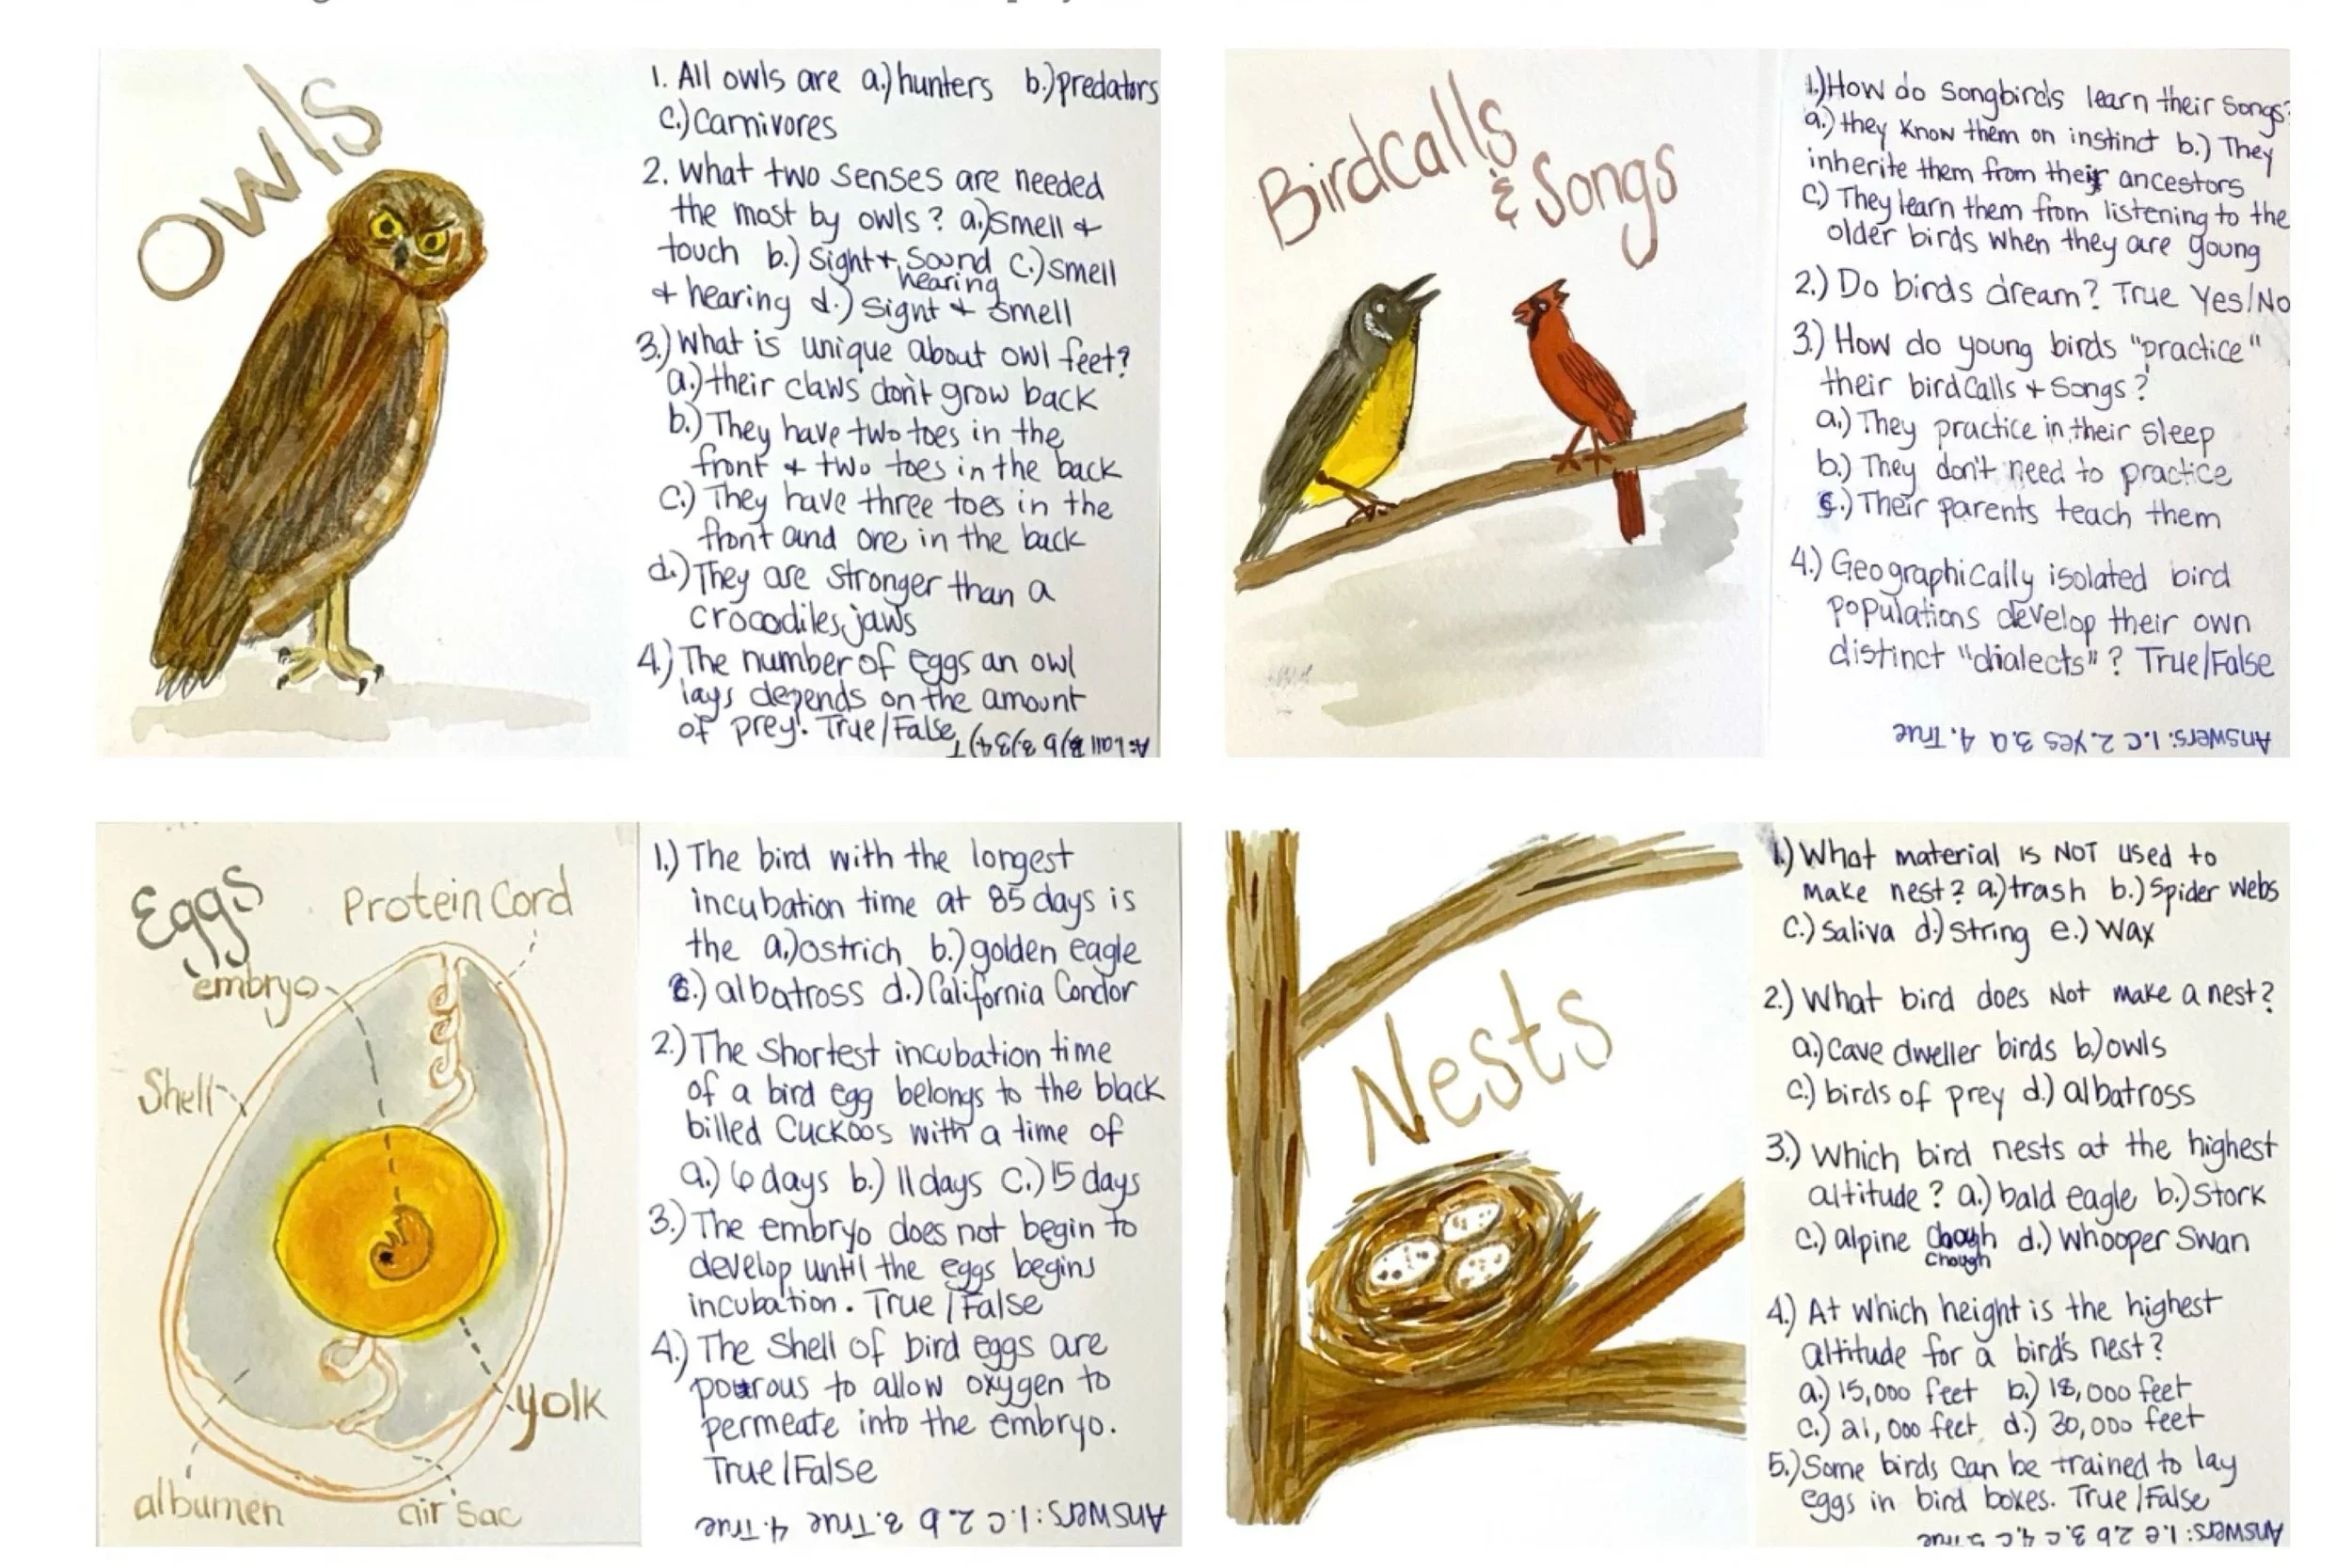 Owls
1. All owls are a.) hunters b.) predators
c.) Carnivores
2. What two senses are needed
the most by owls? a.) Smell +
touch b.) Sight + Sound c.) Smell
hearing
+ hearing d.) Sight + Smell
3.) What is unique about owl feet?
a.) their claws don't grow back
b.) They have two toes in the
front + two toes in the back
c.) They have three toes in the
front and one in the back
d.) They are stronger than a
crocodiles jaws
4.) The number of eggs an owl
lays depends on the amount
of prey. True/False
Birdcalls
& Songs
1.) How do Songbirds learn their songs?
a.) they know them on instinct b.) They
inherite them from their ancestors
c.) They learn them from listening to the
older birds when they are young
2.) Do birds dream? True Yes/No
3.) How do young birds "practice"
their birdcalls + Songs?
a.) They practice in their sleep
b.) They don't need to practice
c.) Their parents teach them
4.) Geographically isolated bird
populations develop their own
distinct "dialects"? True/False
Answers: 1. C 2. Yes 3. a 4. True
Eggs
Protein Cord
embryo
Shell
yolk
albumen
air sac
1.) The bird with the longest
incubation time at 85 days is
the a.) ostrich b.) golden eagle
c.) albatross d.) California Condor
2.) The shortest incubation time
of a bird egg belongs to the black
billed Cuckoos with a time of
a.) 6 days b.) 11 days c.) 15 days
3.) The embryo does not begin to
develop until the eggs begins
incubation. True/False
4.) The Shell of bird eggs are
pourous to allow oxygen to
permeate into the embryo.
True/False
Answers: 1. C 2. b 3. True 4. True
Nests
1.) What material is NOT used to
make nest? a.) trash b.) Spider webs
c.) Saliva d.) string e.) Wax
2.) What bird does Not make a nest?
a.) Cave dweller birds b.) owls
c.) birds of prey d.) albatross
3.) Which bird nests at the highest
altitude? a.) bald eagle b.) Stork
c.) alpine Chough d.) Whooper Swan
Chough
4.) At which height is the highest
altitude for a bird's nest?
a.) 15,000 feet b.) 18,000 feet
c.) 21,000 feet d.) 30,000 feet
5.) Some birds can be trained to lay
eggs in bird boxes. True/False
Answers: 1. e 2. b 3. c 4. c 5. True